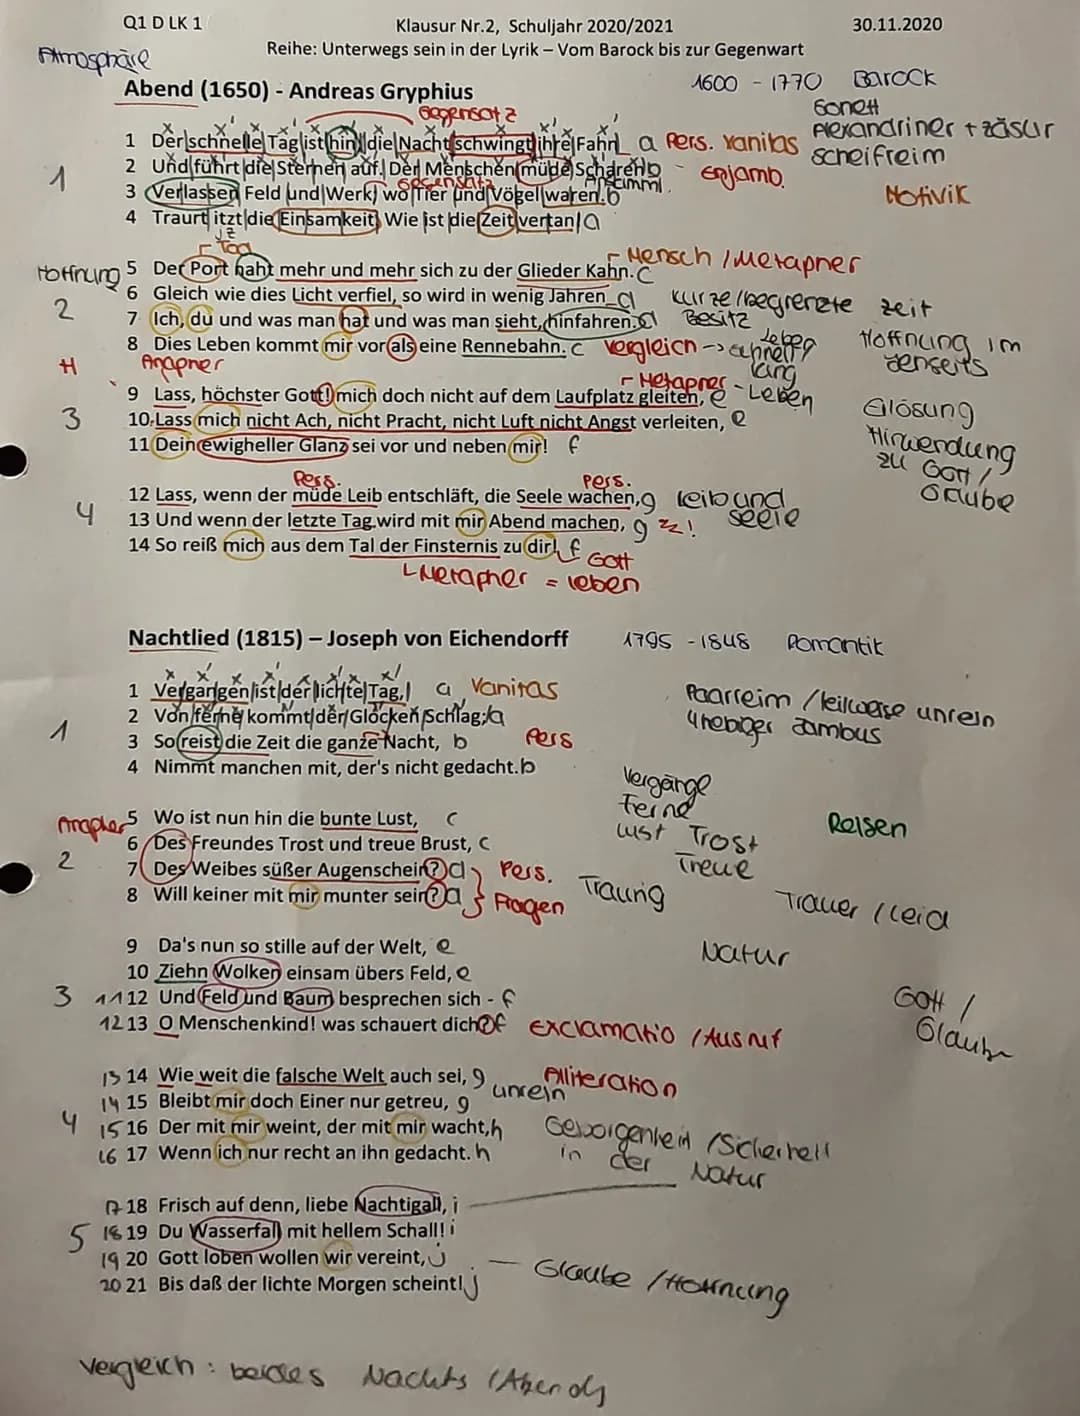 Q1 D LK 1
Klausur Nr.2, Schuljahr 2020/2021
30.11.2020
Reihe: Unterwegs sein in der Lyrik – Vom Barock bis zur Gegenwart
Atmosphäre
Abend (1650) - Andreas Gryphius
1600 - 1770 Barock
Gegensatz
Sonett
Alexandriner + Zäsur
1 Der schnelle Tag ist hin, die Nacht schwingt ihre Fahn a Pers. Vanitas
scheifreim
1
2 Und führt die Sternen auf. Der Menschen müde Scharen b - Enjamb.
Gegensatz
3 Verlassen Feld und Werk, wo Tier und Vögel waren. b
Motivik
4 Traurt itzt die Einsamkeit. Wie ist die Zeit vertan! a
Tod
Mensch / Metapher
Hoffnung
5 Der Port naht mehr und mehr sich zu der Glieder Kahn. c
2
6 Gleich wie dies Licht verfiel, so wird in wenig Jahren d kurze/begrenzte Zeit
7 Ich, du und was man hat und was man sieht, hinfahren. d Besitz
8 Dies Leben kommt mir vor als eine Rennebahn. c Vergleich -> Leben
Hoffnung im Jenseits
H
Anapher
Metapher - Leben
9 Lass, höchster Gott! mich doch nicht auf dem Laufplatz gleiten, e
3
10 Lass mich nicht Ach, nicht Pracht, nicht Luft nicht Angst verleiten, e
11 Dein ewigheller Glanz sei vor und neben mir! f
Erlösung
Hinwendung
zu Gott /
Glaube
Pers.
Pers.
4
12 Lass, wenn der müde Leib entschläft, die Seele wachen, g Leib und Seele
13 Und wenn der letzte Tag wird mit mir Abend machen, g !
14 So reiß mich aus dem Tal der Finsternis zu dir! f Gott
Metapher = Leben
Nachtlied (1815) – Joseph von Eichendorff
1795 - 1848 Romantik
1 Vergangen ist der lichte Tag, a Vanitas
Paarreim / teilweise unrein
1
2 Von ferne kommt der Glocken Schlag; a
4hebiger Jambus
3 So reist die Zeit die ganze Nacht, b Pers
4 Nimmt manchen mit, der's nicht gedacht. b
Vergänge
Ferne
Lust Trost
Treue
Reisen
Anapher
5 Wo ist nun hin die bunte Lust, c
6 Des Freundes Trost und treue Brust, c
2
7 Des Weibes süßer Augenschein? d Pers.
8 Will keiner mit mir munter sein? d Fragen
Traurig
Trauer / Leid
9 Da's nun so stille auf der Welt, e
Natur
10 Ziehn Wolken einsam übers Feld, e
3
11 12 Und Feld und Baum besprechen sich - f
12 13 O Menschenkind! was schauert dich? f Exclamatio / Ausruf
Gott /
Glaube
13 14 Wie weit die falsche Welt auch sei, g Alliteration
unrein
14 15 Bleibt mir doch Einer nur getreu, g
4
15 16 Der mit mir weint, der mit mir wacht, h
16 17 Wenn ich nur recht an ihn gedacht. h
Geborgenheit / Sicherheit
in der Natur
17 18 Frisch auf denn, liebe Nachtigall, i
5
18 19 Du Wasserfall mit hellem Schall! i
19 20 Gott loben wollen wir vereint, j
20 21 Bis daß der lichte Morgen scheint! j
— Glaube / Hoffnung
Vergleich: beides Nachts / Abends